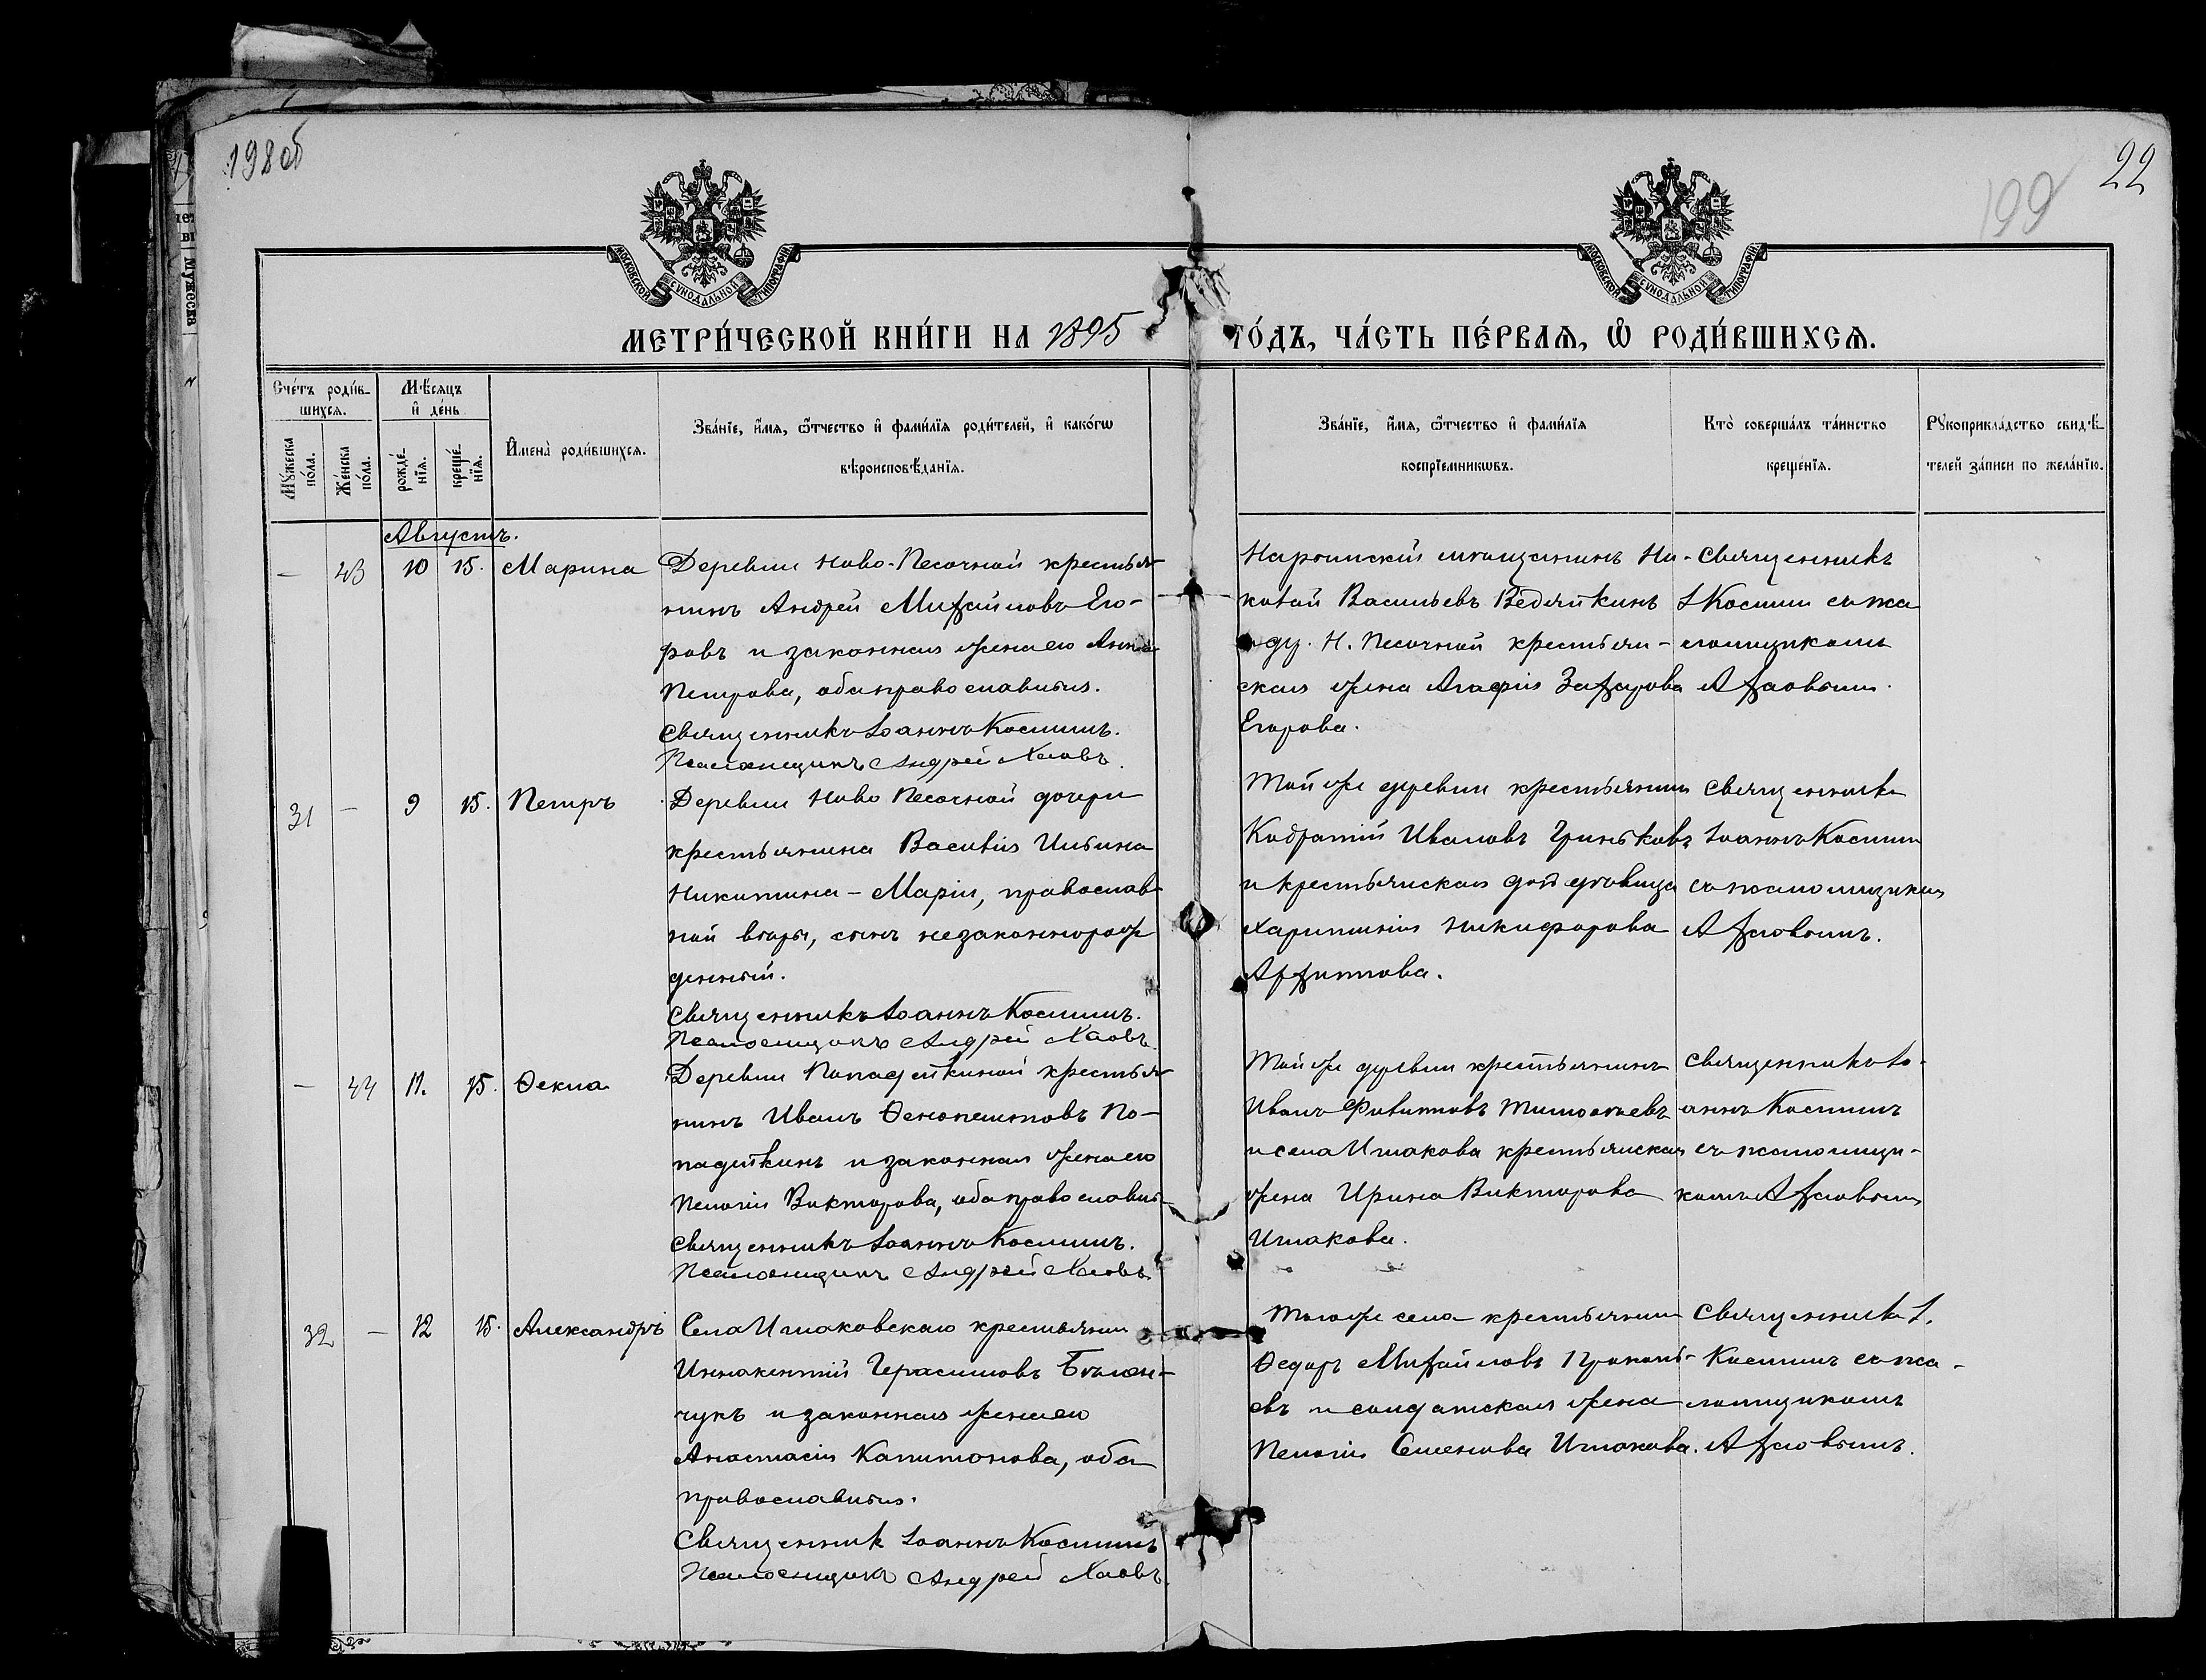 198 об
22
199
МОСКОВСКОЙ СУНОДАЛЬНОЙ ТИПОГРАФІИ
МОСКОВСКОЙ СУНОДАЛЬНОЙ ТИПОГРАФІИ
МЕТРИ́ЧЕСКОЙ КНИ́ГИ НА 1895 ГО́ДЪ, ЧА́СТЬ ПЕ́РВАѦ, Ѡ҆ РОДИ́ВШИХСѦ.
Сче́тъ роди́в-
шихсѧ.
Мꙋ́жеска по́ла.
Же́нска по́ла.
Мѣ́сѧцъ
и҆ де́нь
рожде́-
нїѧ.
креще́-
нїѧ.
И҆мена̀ роди́вшихсѧ.
Зва́нїе, и҆́мѧ, ѻ҆́тчество и҆ фами́лїѧ роди́телей, и҆ како́гѡ
вѣроисповѣ́данїѧ.
Зва́нїе, и҆́мѧ, ѻ҆́тчество и҆ фами́лїѧ
воспрїе́мникѡвъ.
Кто̀ соверша́лъ та́инство
креще́нїѧ.
Рꙋкоприкла́дство свидѣ́-
телей за́писи по жела́нїю.
Августъ.
— 43 10 15. Марина
Деревни Ново-Песочной крестья-
нинъ Андрей Михайловъ Его-
ровъ и законная жена его Анна
Петрова, оба православныя.
Священникъ Іоаннъ Космин.
Псаломщикъ Андрей Хловъ.
мѣщанинъ Ни-
колай Васильевъ Ведяйкинъ
и дер. Н. Песочной крестьян-
ская жена Агафія Захарова
Егорова.
Священникъ
І Космин съ пса
ломщикомъ
А Хловым.
31 — 9 15. Петръ
Деревни Ново Песочной дочери
крестьянина Василія Ильина
Никитина - Маріи, православ-
ной вѣры, сынъ незаконнорож
денный.
Священникъ Іоаннъ Космин.
Псаломщикъ Андрей Хловъ.
Той же деревни крестьянин
Кодратій Ивановъ Гриньковъ
и крестьянская вдовица
Харитинія Никифорова
Архипова.
Священникъ
Іоаннъ Космин
съ псаломщиком
А Хловымъ.
— 44 11. 15. Ѳекла
Деревни Попадейкиной крестья-
нинъ Иванъ Ѳемопемптовъ По-
падейкинъ и законная жена его
Пелагія Викторова, оба православны-
Священникъ Іоаннъ Космин.
Псаломщикъ Андрей Хловъ.
Той же деревни крестьянинъ
Иванъ Филиповъ Тимофѣевъ
и села Ишакова крестьянская
жена Ирина Викторова
Ишакова.
Священникъ Іо-
аннъ Космин
съ псаломщи-
комъ А Хловым
32 — 12 15. Александръ
Села Ишаковскаго крестьянин
Иннокентій Герасимовъ Бѣлон-
чукъ и законная жена его
Анастасія Капитонова, оба
православныя.
Священник Іоаннъ Космин
Псаломщикъ Андрей Хловъ.
Того же села крестьянин
Ѳедоръ Михайловъ Прокопь-
евъ и солдатская жена
Пелагія Семенова Ишакова.
Священникъ І.
Космин съ пса-
ломщикомъ
А Хловымъ.